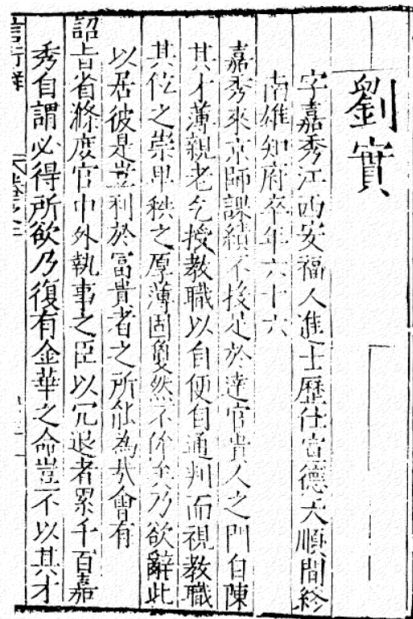 劉實
字嘉秀江西安福人進士歷仕宣德天順間終
南雄知府卒年六十六
嘉秀來京師課績不投足於達官貴人之門自陳
其才薄親老乞授教職以自便自通判而視教職
其位之崇卑秩之厚薄固敻然不侔矣乃欲辭此
以居彼是豈利於富貴者之所能為哉會有
詔旨省滌庶官中外執事之臣以冗退者累千百嘉
秀自謂必得所欲乃復有金華之命豈不以其才
言行錄